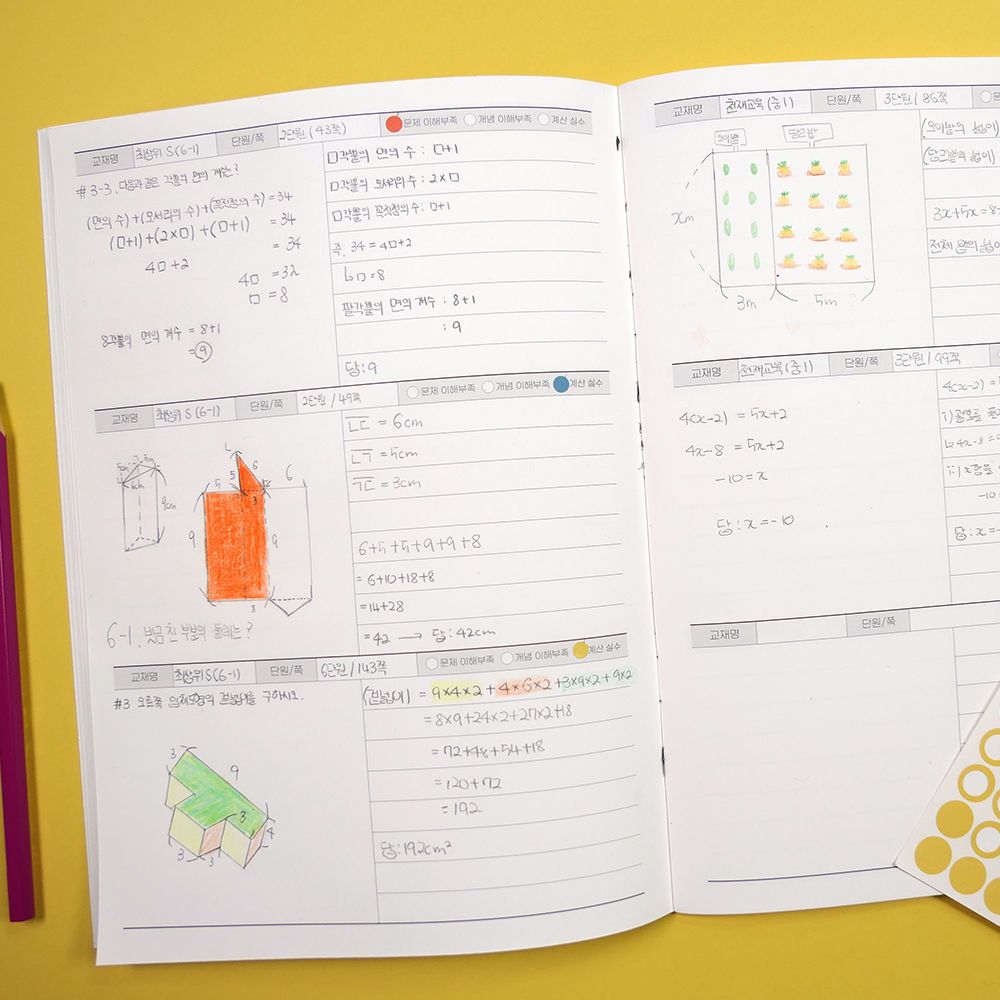 교재명 최상위 S (6-1) 단원/쪽 2단원 (43쪽) 문제 이해부족 개념 이해부족 계산 실수
#3-3. 다음과 같은 각뿔의 면의 개수는?
(면의 수)+(모서리의 수)+(꼭짓점의 수) = 34
(□+1)+(2×□)+(□+1) = 34
4□+2 = 34
4□ = 32
□ = 8
8각뿔의 면의 개수 = 8+1
= 9
□각뿔의 면의 수 : □+1
□각뿔의 모서리의 수 : 2×□
□각뿔의 꼭짓점의 수 : □+1
즉, 34 = 4□+2
□ = 8
팔각뿔의 면의 개수 : 8+1
: 9
답 : 9
교재명 최상위 S (6-1) 단원/쪽 2단원 / 49쪽 문제 이해부족 개념 이해부족 계산 실수
5cm 3cm
6cm
9cm
ㄴ
5 6
5 3 6
9 9
8
6-1. 빗금 친 부분의 둘레는?
ㄴㄷ = 6cm
ㄴㄱ = 5cm
ㄱㄷ = 3cm
6+5+5+9+9+8
= 6+10+18+8
= 14+28
= 42 → 답 : 42cm
교재명 최상위 S (6-1) 단원/쪽 6단원 / 143쪽 문제 이해부족 개념 이해부족 계산 실수
#3 오른쪽 입체모양의 겉넓이를 구하시오.
3 9
3 4
3 3
(겉넓이) = 9×4×2 + 4×6×2 + 3×9×2 + 9×2
= 8×9+24×2+27×2+18
= 72+48+54+18
= 120+72
= 192
답 : 192cm²
교재명 천재교육 (중1) 단원/쪽 3단원 / 86쪽
오이밭 당근밭
xm
3m 5m
(오이밭의 넓이)
(당근밭의 넓이)
3x+5x = 8
전체 밭의 넓이
교재명 천재교육 (중1) 단원/쪽 3단원 / 99쪽
4(x-2) = 5x+2
4x-8 = 5x+2
-10 = x
답 : x = -10
4(x-2) =
4x-8 =
-10
답 : x = -
교재명 단원/쪽